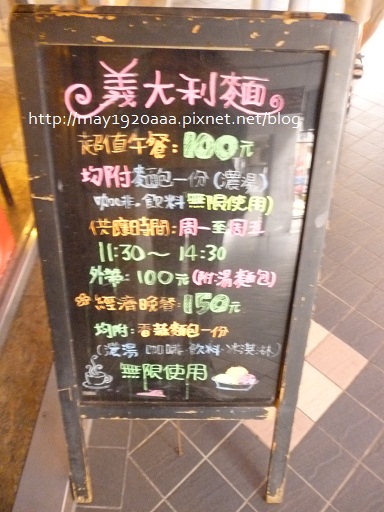 義大利麵
http://may1920aaa.pixnet.net/blog
超值午餐：100元
均附麵包一份(濃湯
咖啡.飲料無限使用)
供應時間：周一至周五
11:30～14:30
外帶：100元(附湯麵包)
經濟晚餐：150元
均附：香蒜麵包一份
(濃湯 咖啡 飲料 冰淇淋)
無限使用